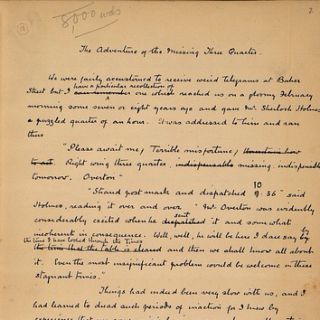 8,000 wds
2
The Adventure of the Missing Three Quarter.
We were fairly accustomed to receive weird telegrams at Baker
have a particular recollection of
Street but I one which reached us on a gloomy February
morning some seven or eight years ago and gave Mr Sherlock Holmes
a puzzled quarter of an hour. It was addressed to him and ran
thus
"Please await me. Terrible misfortune,
Right wing three quarter, indispensable missing. indispensable
tomorrow. Overton"
10
"Strand post mark and dispatched 9.36" said
Holmes, reading it over and over "Mr Overton was evidently
sent
considerably excited when he dispatched it and somewhat
incoherent in consequence. Well, well, he will be here I dare say by
the time I have looked through the Times
the time that the table is cleared and then we shall know all about
it. Even the most insignificant problem would be welcome in these
stagnant times."
Things had indeed been very slow with us, and I
had learned to dread such periods of inaction for I knew by